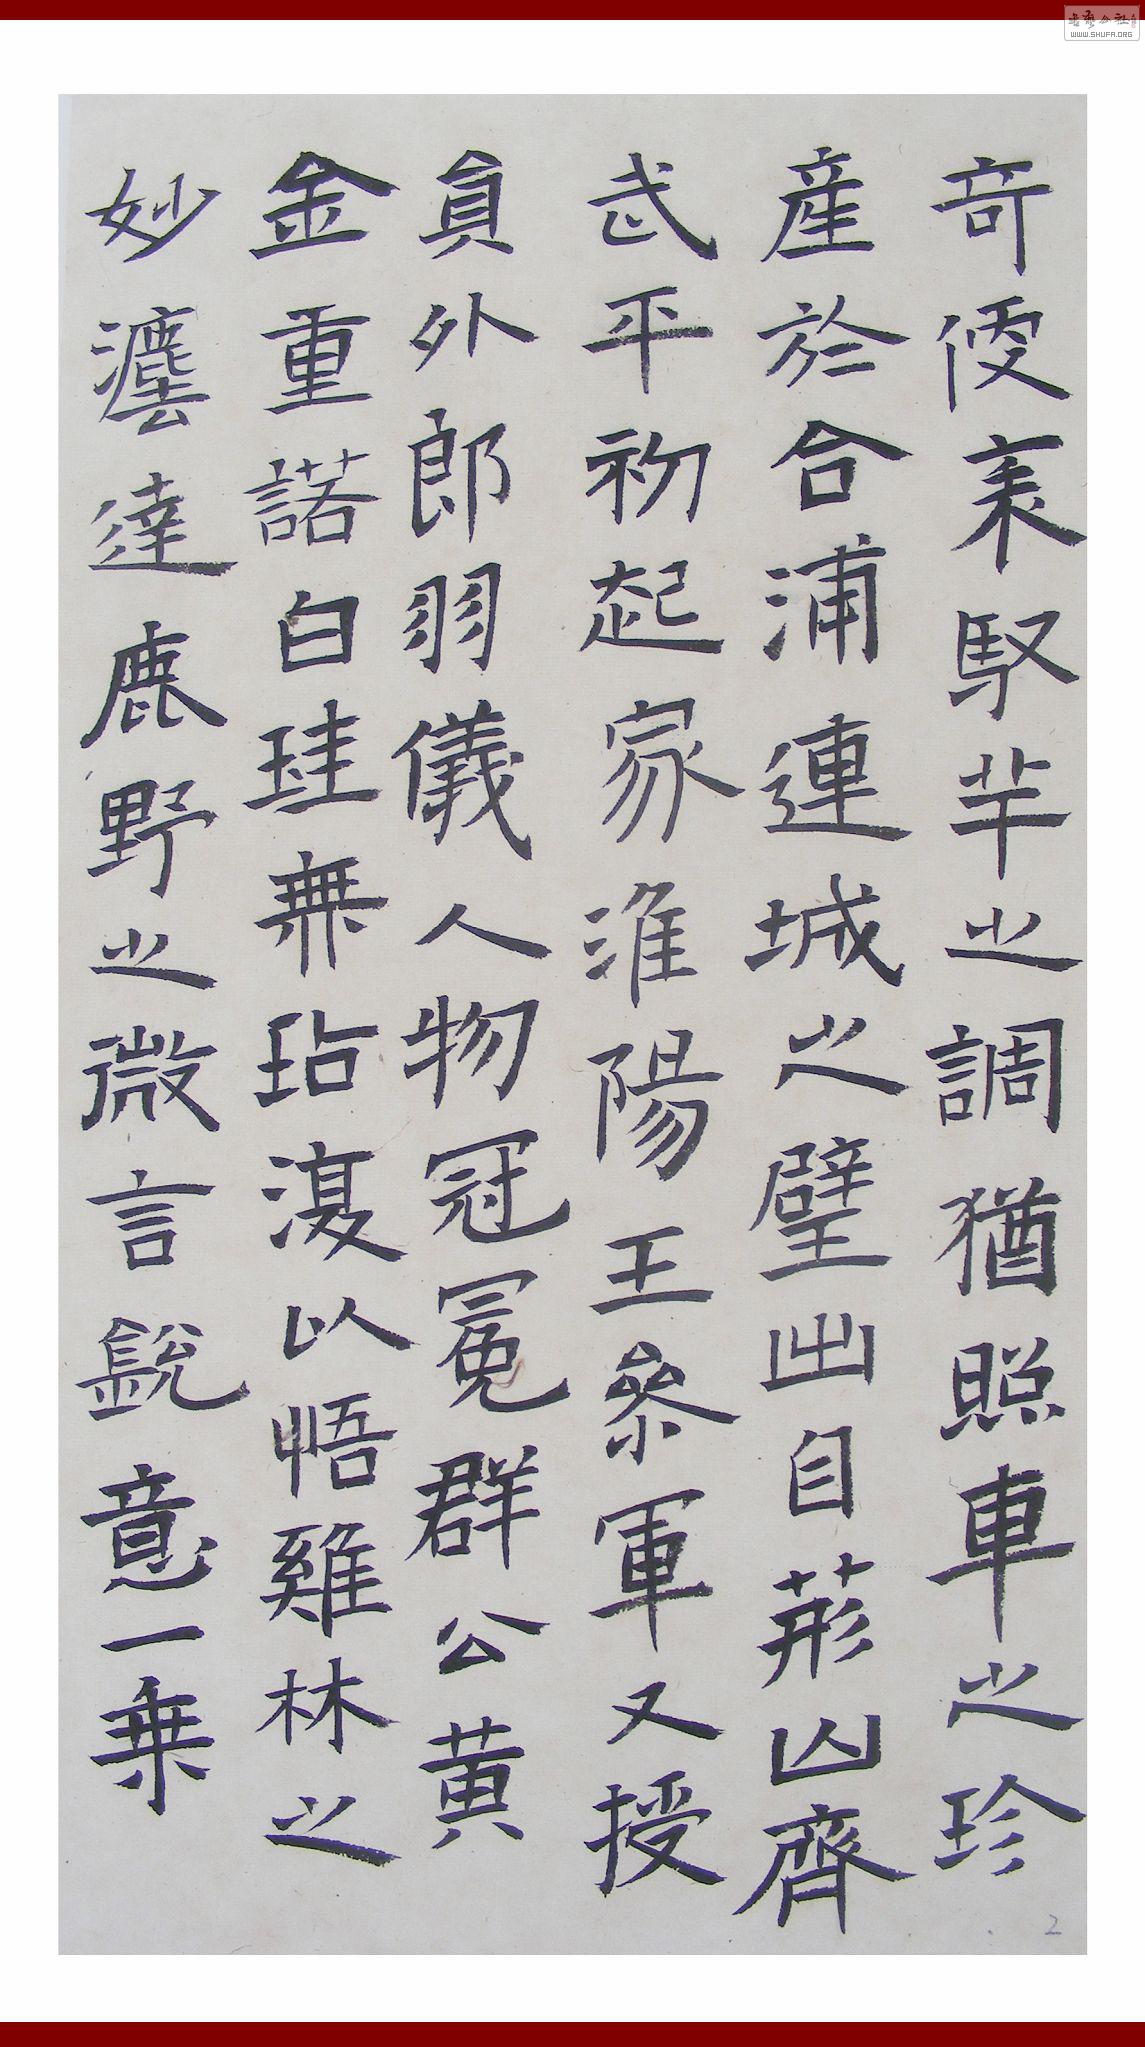 奇便襄駅羋之調猶照車之珍
産於合浦連城之璧出自荊山齊
武平初起家淮陽王參軍又授
員外郎羽儀人物冠冕群公黄
金重諾白珪無玷復以悟雞林之
妙達鹿野之微言銳意一乗
2
WWW.SHUFA.ORG